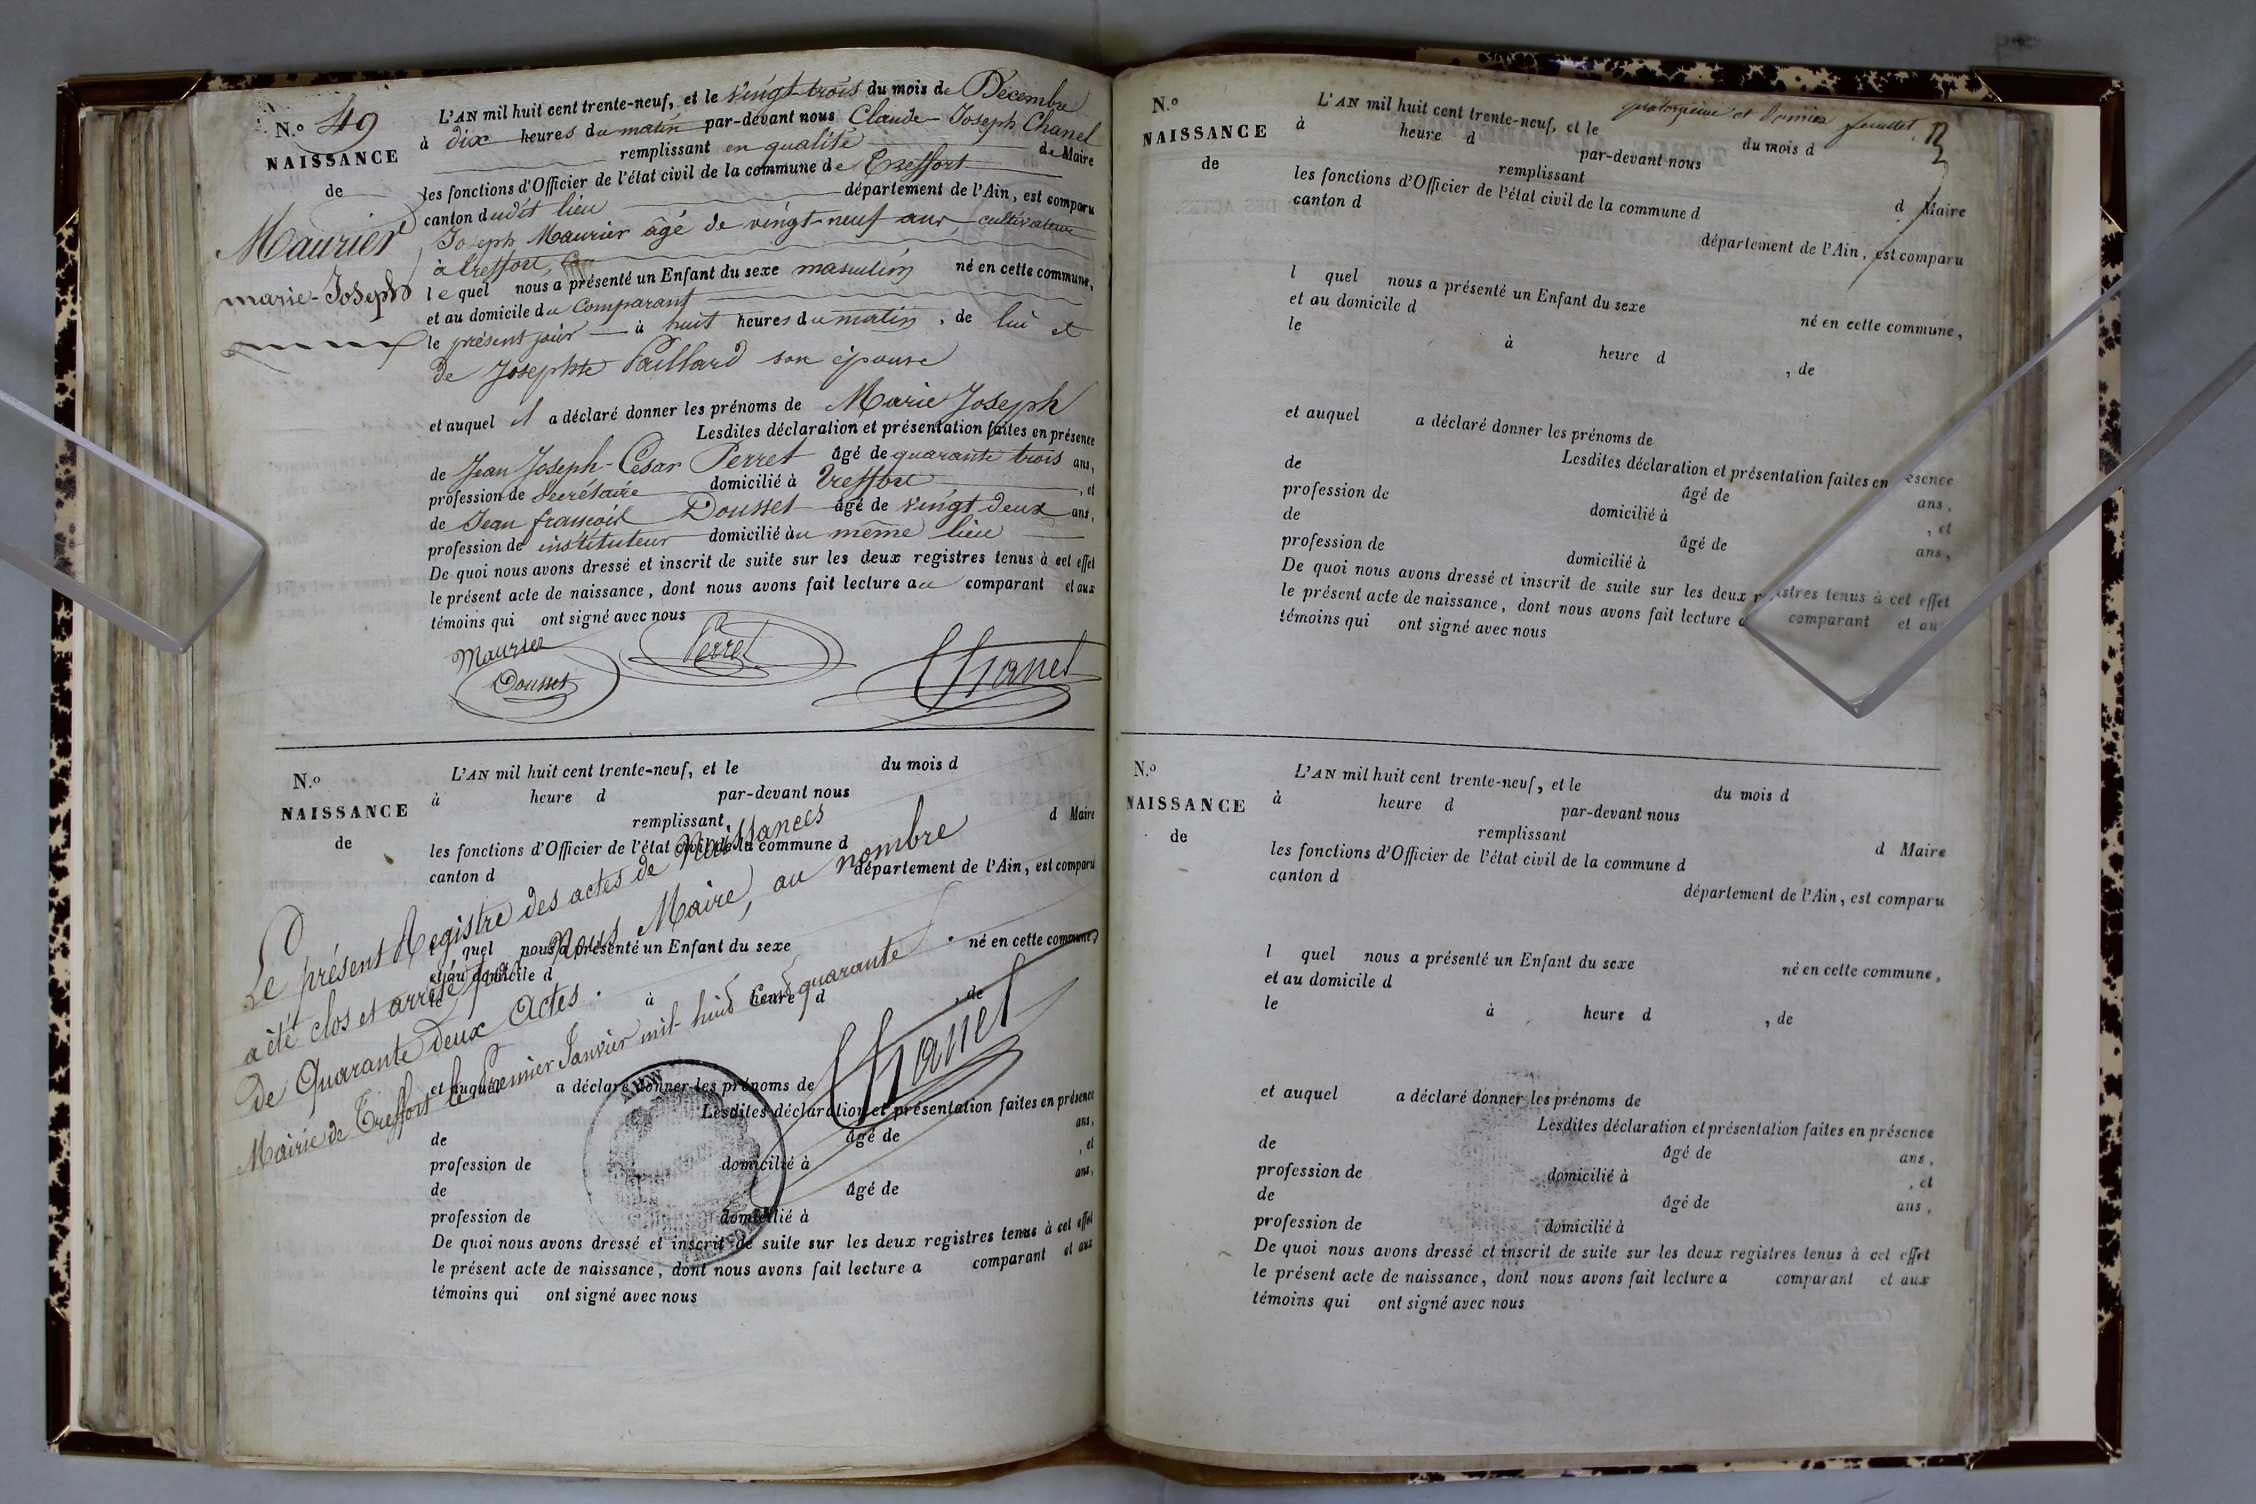 N.º 49
NAISSANCE
de
Maurier
marie-Joseph
L'AN mil huit cent trente-neuf, et le vingt trois du mois de Décembre
à dix heures du matin par-devant nous Claude-Joseph Chanel
remplissant en qualité de Maire
les fonctions d'Officier de l'état civil de la commune de Treffort
canton dudit lieu département de l'Ain, est comparu
Joseph Maurier âgé de vingt-neuf ans, cultivateur
à treffort,
lequel nous a présenté un Enfant du sexe masculin né en cette commune,
et au domicile du Comparant
le présent jour à huit heures du matin, de lui et
de Josephte Paillard son épouse
et auquel il a déclaré donner les prénoms de Marie Joseph
Lesdites déclaration et présentation faites en présence
de Jean Joseph-César Perret âgé de quarante trois ans,
profession de Secrétaire domicilié à Treffort, et
de Jean françois Dousset âgé de vingt-deux ans,
profession de instituteur domicilié au même lieu
De quoi nous avons dressé et inscrit de suite sur les deux registres tenus à cet effet
le présent acte de naissance, dont nous avons fait lecture au comparant et aux
témoins qui ont signé avec nous
Maurier Perret
Dousset Chanel
N.º
NAISSANCE
de
L'AN mil huit cent trente-neuf, et le du mois d
à heure d par-devant nous
remplissant d Maire
les fonctions d'Officier de l'état civil de la commune d
canton d département de l'Ain, est comparu
l quel nous a présenté un Enfant du sexe né en cette commune,
et au domicile d
le à heure d , de
et auquel a déclaré donner les prénoms de
Lesdites déclaration et présentation faites en présence
de âgé de ans,
profession de domicilié à , et
de âgé de ans,
profession de domicilié à
De quoi nous avons dressé et inscrit de suite sur les deux registres tenus à cet effet
le présent acte de naissance, dont nous avons fait lecture a comparant et aux
témoins qui ont signé avec nous
Le présent Registre des actes de Naissances
a été clos et arrêté par Nous Maire, au nombre
de Quarante deux Actes.
Mairie de Treffort le Premier Janvier mil huit Cent quarante.
Chanel
quatorzième et dernier feuillet.
N.º
NAISSANCE
de
L'AN mil huit cent trente-neuf, et le du mois d
à heure d par-devant nous
remplissant d Maire
les fonctions d'Officier de l'état civil de la commune d
canton d département de l'Ain, est comparu
l quel nous a présenté un Enfant du sexe né en cette commune,
et au domicile d
le à heure d , de
et auquel a déclaré donner les prénoms de
Lesdites déclaration et présentation faites en présence
de âgé de ans,
profession de domicilié à , et
de âgé de ans,
profession de domicilié à
De quoi nous avons dressé et inscrit de suite sur les deux registres tenus à cet effet
le présent acte de naissance, dont nous avons fait lecture a comparant et au
témoins qui ont signé avec nous
N.º
NAISSANCE
de
L'AN mil huit cent trente-neuf, et le du mois d
à heure d par-devant nous
remplissant d Maire
les fonctions d'Officier de l'état civil de la commune d
canton d département de l'Ain, est comparu
l quel nous a présenté un Enfant du sexe né en cette commune,
et au domicile d
le à heure d , de
et auquel a déclaré donner les prénoms de
Lesdites déclaration et présentation faites en présence
de âgé de ans,
profession de domicilié à , et
de âgé de ans,
profession de domicilié à
De quoi nous avons dressé et inscrit de suite sur les deux registres tenus à cet effet
le présent acte de naissance, dont nous avons fait lecture a comparant et aux
témoins qui ont signé avec nous